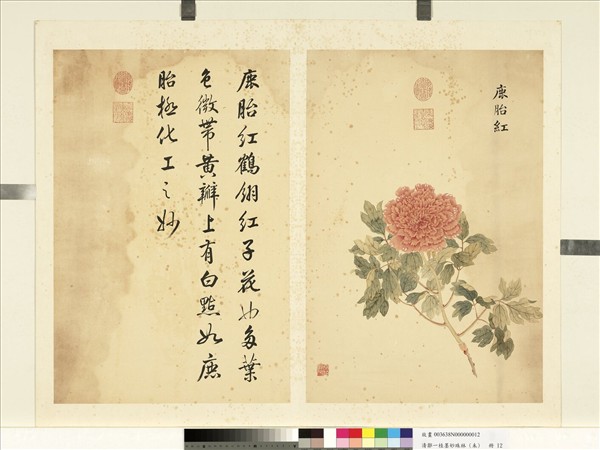 鹿胎紅
鹿胎紅鶴翎紅子花也多葉
色微帶黃瓣上有白點如鹿
胎極化工之妙
故畫 003638N000000012
清鄒一桂墨妙珠林（未） 12